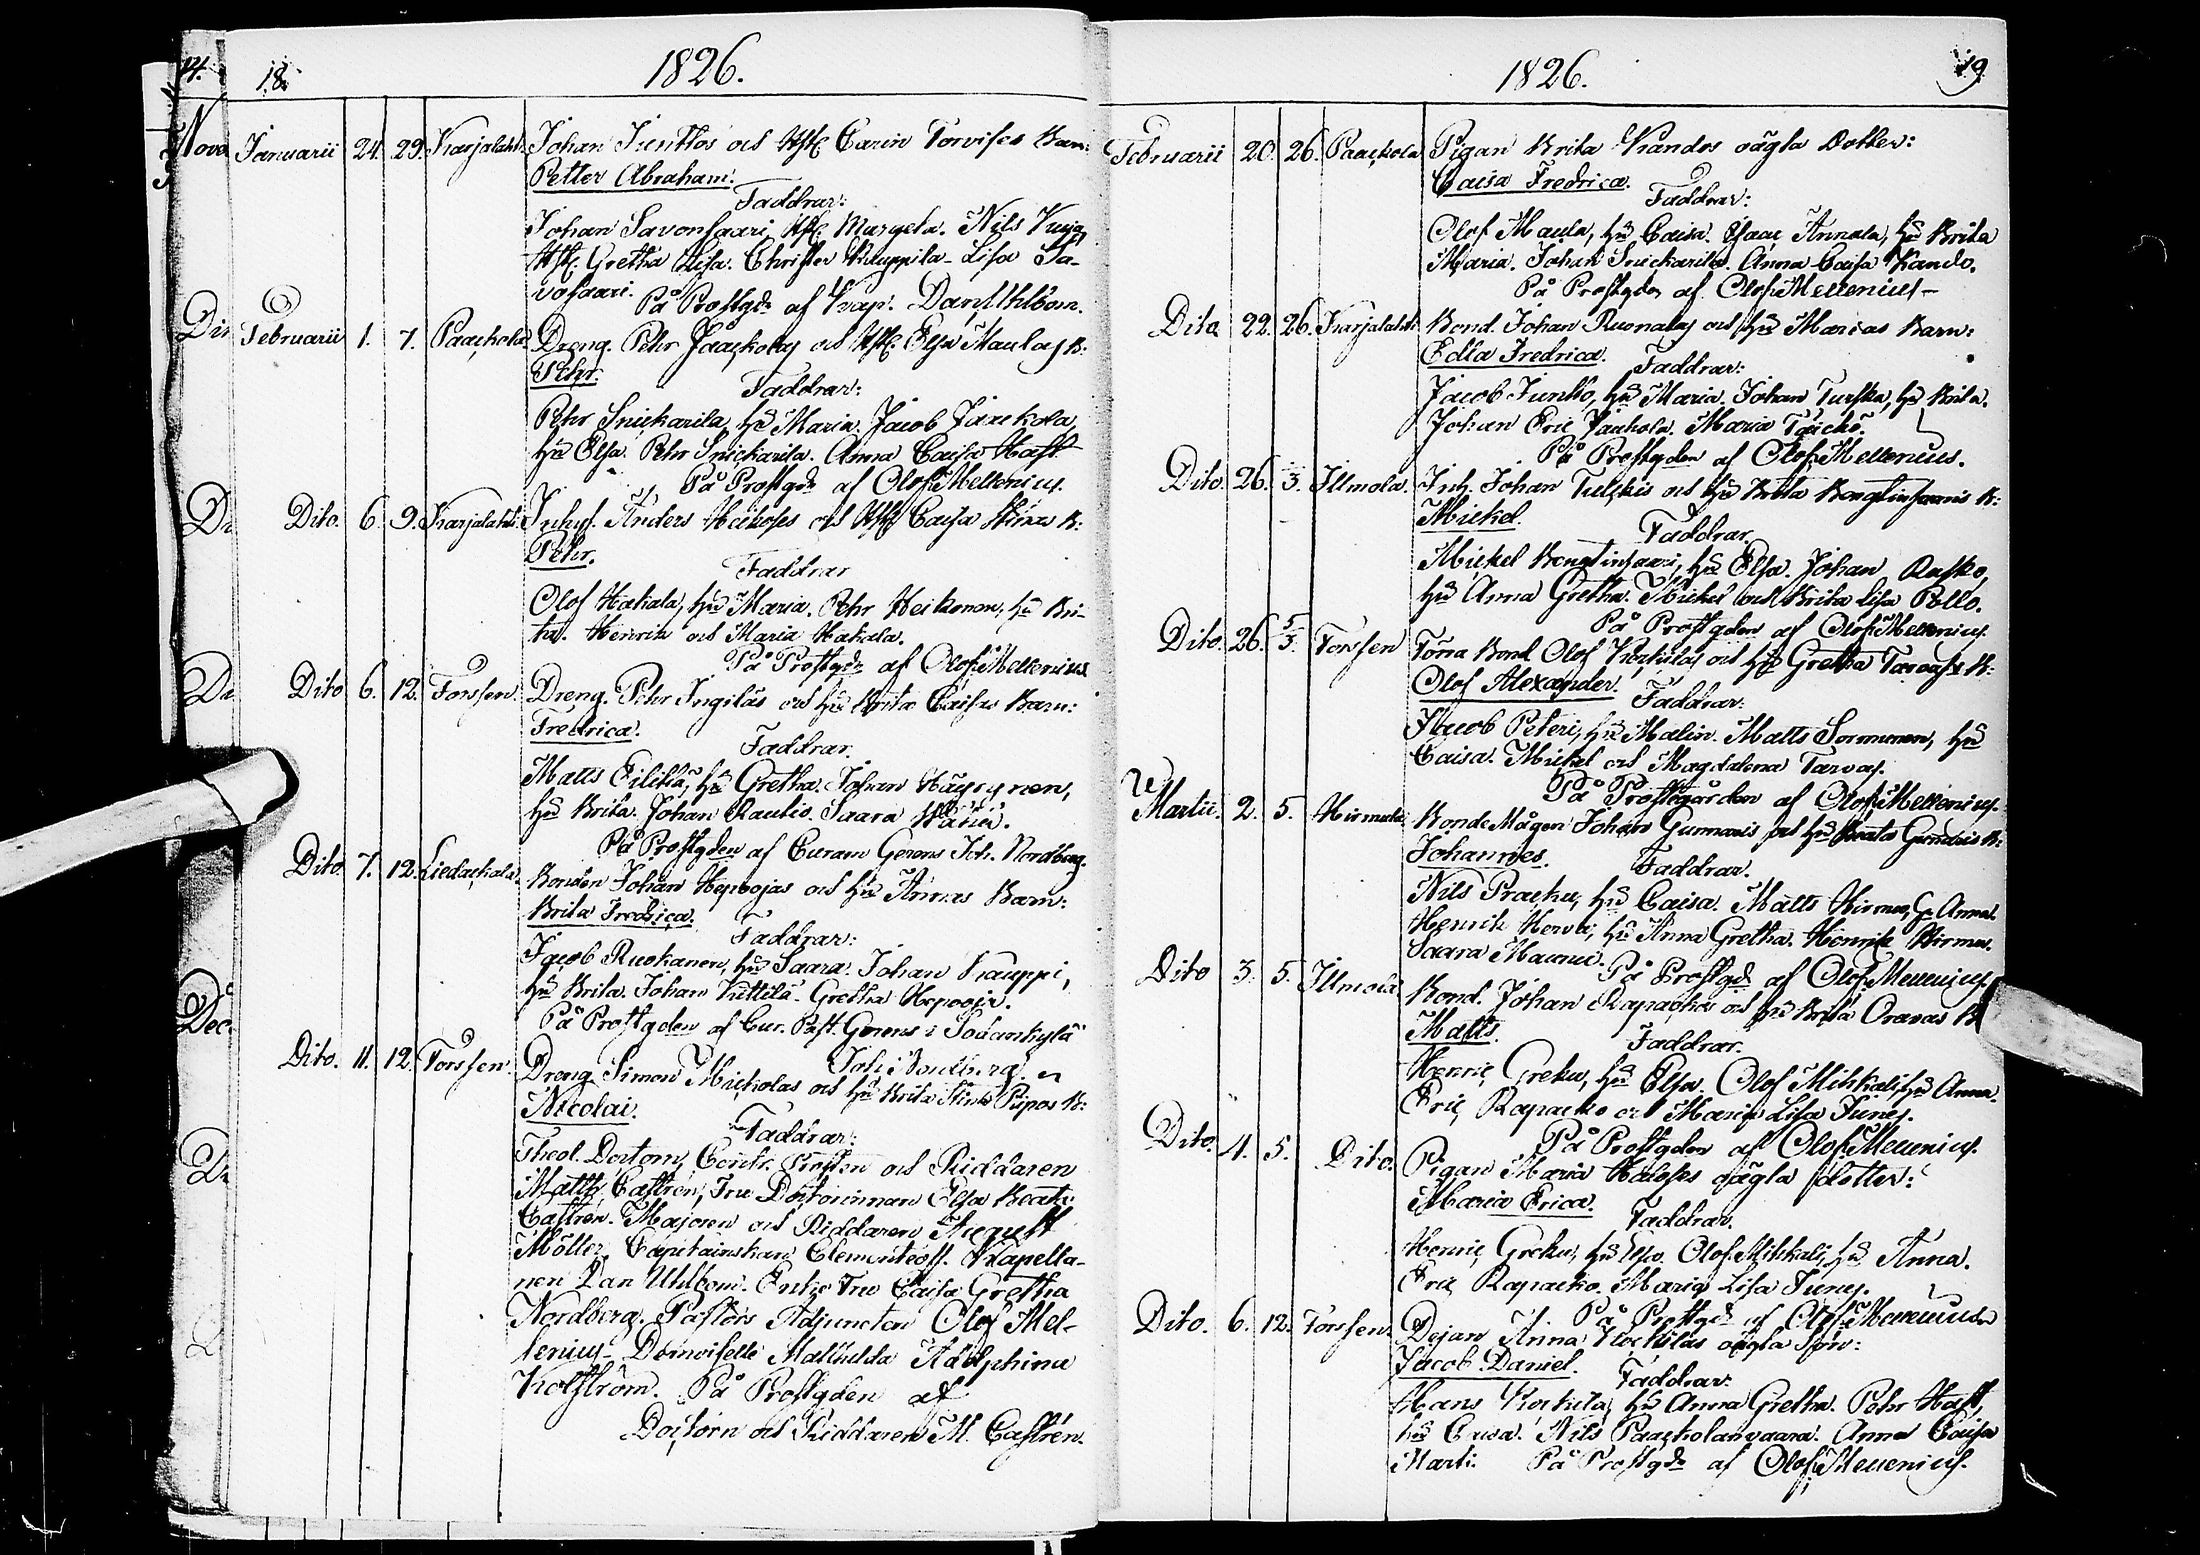 14.
18.
1826.
Januarii 24. 29. Karjalahti. Johan Junttos och Hst. Carin Torvises Barn:
Petter Abraham.
Faddrar:
Johan Savonsaari, Hst. Margeta. Nils
Hst. Gretha Lisa. Christer Kauppila. Lisa Sa-
vosaari.
På Prostgdn af Kap: Dan. Uhlbom.
Februarii 1. 7. Paackola. Dreng. Pehr Jaackolas och Hst. Elsa Maulas B:
Pehr.
Faddrar:
Pehr Snickarila, Hu Maria. Jacob Jaackola,
Hu Elsa. Pehr Snickarila. Anna Caisa Hast
På Prostgdn af Olof Mellenius.
Dito. 6. 9. Karjalahti. Inhys. Anders och Hst. Caisa Stinas B:
Pehr.
Faddrar
Olof Hakala, Hu Maria. Pehr Heikonen, Hu Bri-
ta. Henrik och Maria Hakala.
På Prostgdn af Olof Mellenius
Dito 6. 12. Torssen. Dreng. Pehr Ingiläs och Hu Brita Caisas Barn:
Fredrica.
Faddrar.
Matts Eilittä, Hu Gretha. Johan Häyrynen,
Hu Brita. Johan Rautio. Saara
På Prostgden af Curam Gerens Joh. Nordberg.
Dito. 7. 12. Liedackala. Bonden Johan Hepoojas och Hu Annas Barn:
Brita Fredrica.
Faddrar:
Jacob Ruokanen, Hu Saara. Johan Kauppi,
Hu Brita. Johan Kittilä. Gretha Hepooja.
På Prostgden af Cur. Past. Gerens i Sodankylä
Joh: Nordberg.
Dito. 11. 12. Torssen. Dreng Simon Mickolas och Hu Brita Stina Piipos B:
Nicolai.
Faddrar:
Theol. Doctorn, Contr. Prosten och Riddaren
Matth. Castrén, Fru Doctorinnan Elsa Beata
Castrén. Majoren och Riddaren August
Möller, Capitainskan Clementeoff. Kapella-
nen Dan Uhlbom. Enke Fru Caisa Gretha
Nordberg. Pastors Adjuncten Olof Mel-
lenius. Demoiselle Mathilda Adolphina
Kolström. På Prostgden af
Doctorn och Riddaren M. Castrén.
1826.
19
Februarii 20. 26. Paackola Pigan Brita Kandos oägta Dotter:
Caisa Fredrica.
Faddrar:
Olof Maula, Hu Caisa. Isaac Annala, Hu Brita
Maria. Johan Snickarila. Anna Caisa Kando.
På Prostgden af Olof Mellenius
Dito 22. 26. Karjalahti. Bond. Johan Ruonalas och Hu Marias Barn:
Edla Fredrica.
Faddrar:
Jacob Juntto, Hu Maria. Johan Turska, Hu Brita.
Johan Eric Maria
På Prostgden af Olof Mellenius.
Dito. 26. 3. Illmola. Inh. Johan och Hu Brita Bengtinsaaris B:
Mickel.
Faddrar.
Mickel Bengtinsaari, Hu Elsa. Johan Rasko,
Hu Anna Gretha. Mickel och Brita Lisa Pello.
På Prostgden af Olof Mellenius.
Dito. 26. 5/3. Torssen Torra Bond Olof och Hu Gretha B:
Olof Alexander.
Faddrar:
Jacob Peteri, Hu Malin. Matts Sormunen, Hu
Caisa. Mickel och Magdalena Tarvas.
På Prostgården af Olof Mellenius.
Martii. 2. 5. Hirmula. BondeMågen Johan Gunnaris och Hu Beata Gunnaris B:
Johannes.
Faddrar.
Nils Pracku, Hu Caisa. Matts Hirmu, Hu Anna.
Henrik Herva, Hu Anna Gretha. Henrik Hirmu.
Saara Maunu. På Prostgdn af Olof Mellenius.
Dito 3. 5. Illmola Bond. Johan Rapackos och Hu Brita Oravas B
Matts.
Faddrar.
Henric Greku, Hu Elsa. Olof Mihkali, Hu Anna.
Eric Rapacko och Maria Lisa Junes.
På Prostgden af Olof Mellenius.
Dito. 4. 5. Dito. Pigan Maria oägta dotter:
Maria Erica.
Faddrar.
Henric Greku, Hu Elsa. Olof Mihkali, Hu Anna.
Eric Rapacko. Maria Lisa Junes.
På Prostgdn af Olof Mellenius
Dito. 6. 12. Torssen. Dejan Anna Kockilas oägta Son:
Jacob Daniel.
Faddrar:
Hans Kockila, Hu Anna Gretha. Pehr Hast,
Hu Caisa. Nils Paackolanvaara. Anna Caisa
Marti. På Prostgdn af Olof Mellenius.